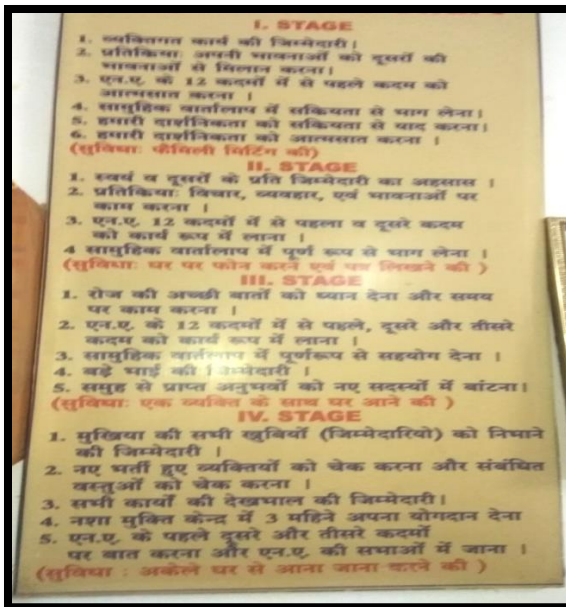 I. STAGE
1. व्यक्तिगत कार्य की जिम्मेदारी।
2. प्रतिकियाः अपनी भावनाओं को दूसरों की
भावनाओं से मिलान करना।
3. एन.ए. के 12 कदमों में से पहले कदम को
आत्मसात करना ।
4. सामुहिक वार्तालाप में सकियता से भाग लेना।
5. हमारी दार्शनिकता को सकियता से याद करना।
6. हमारी दार्शनिकता को आत्मसात करना ।
(सुविधाः फैमिली मिटिंग की)
II. STAGE
1. स्वयं व दूसरों के प्रति जिम्मेदारी का अहसास ।
2. प्रतिकियाः विचार, व्यवहार, एवं भावनाओं पर
काम करना ।
3. एन.ए. 12 कदमों में से पहला व दूसरे कदम
को कार्य रूप में लाना ।
4 सामुहिक वार्तालाप में पूर्ण रूप से भाग लेना ।
(सुविधाः घर पर फोन करने एवं पत्र लिखने की )
III. STAGE
1. रोज की अच्छी बातों को ध्यान देना और समय
पर काम करना ।
2. एन.ए. के 12 कदमों में से पहले, दूसरे और तीसरे
कदम को कार्य रूप में लाना ।
3. सामुहिक वार्तालाप में पूर्णरूप से सहयोग देना ।
4. बड़े भाई की जिम्मेदारी ।
5. समुह से प्राप्त अनुभवों को नए सदस्यों में बांटना।
(सुविधाः एक व्यक्ति के साथ घर आने की )
IV. STAGE
1. मुखिया की सभी खुबियों (जिम्मेदारियो) को निभाने
की जिम्मेदारी ।
2. नए भर्ती हुए व्यक्तियों को चेक करना और संबंधित
वस्तुओं को चेक करना ।
3. सभी कार्यों की देखभाल की जिम्मेदारी।
4. नशा मुक्ति केन्द्र में 3 महिने अपना योगदान देना
5. एन.ए. के पहले दूसरे और तीसरे कदमों
पर बात करना और एन.ए. की सभाओं में जाना ।
(सुविधा : अकेले घर से आना जाना करने की )